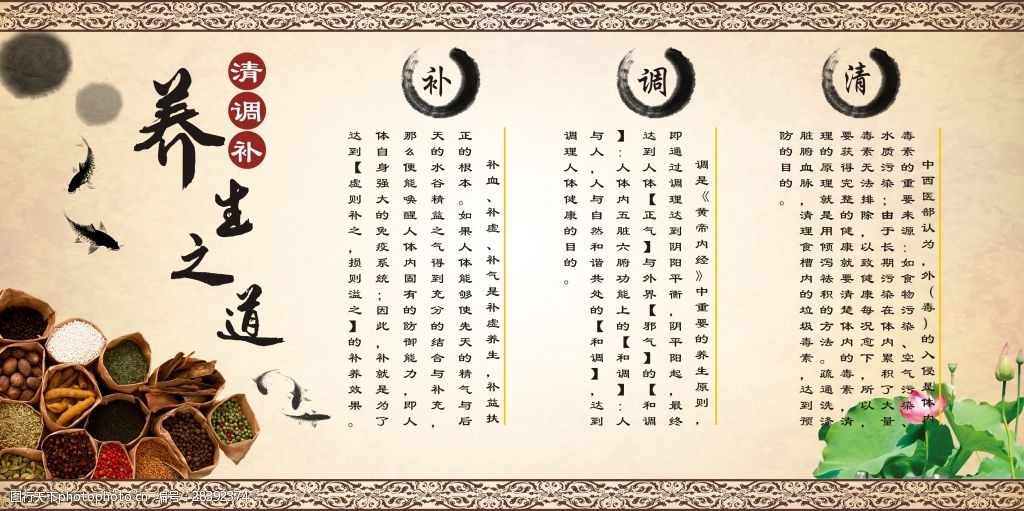 养生之道
清调补
清
中西医部认为,外(毒)的入侵是体内
毒素的重要来源:如食物污染、空气污染、
水质污染;由于长期污染在体内累积了大量
毒素无法排除,以致健康每况愈下,所以,
要获得完整的健康就要清楚体内的毒素,清
理的原理就是用倾泻祛积的方法。疏通洗涤
脏腑血脉,清理食槽内的垃圾毒素,达到预
防的目的。
调
调是《黄帝内经》中重要的养生原则,
即通过调理达到阴阳平衡,阴平阳起,最终
达到人体【正气】与外界【邪气】的【和调
】:人体内五脏六腑功能上的【和调】:人
与人,人与自然和谐共处的【和调】,达到
调理人体健康的目的。
补
补血、补虚、补气是补虚养生,补益扶
正的根本。如果人体能够使先天的精气与后
天的水谷精益之气得到充分的结合与补充,
那么便能唤醒人体内固有的防御能力,即人
体自身强大的免疫系统;因此,补就是为了
达到【虚则补之,损则溢之】的补养效果。
图行天下photophoto.cn 编号:28392374